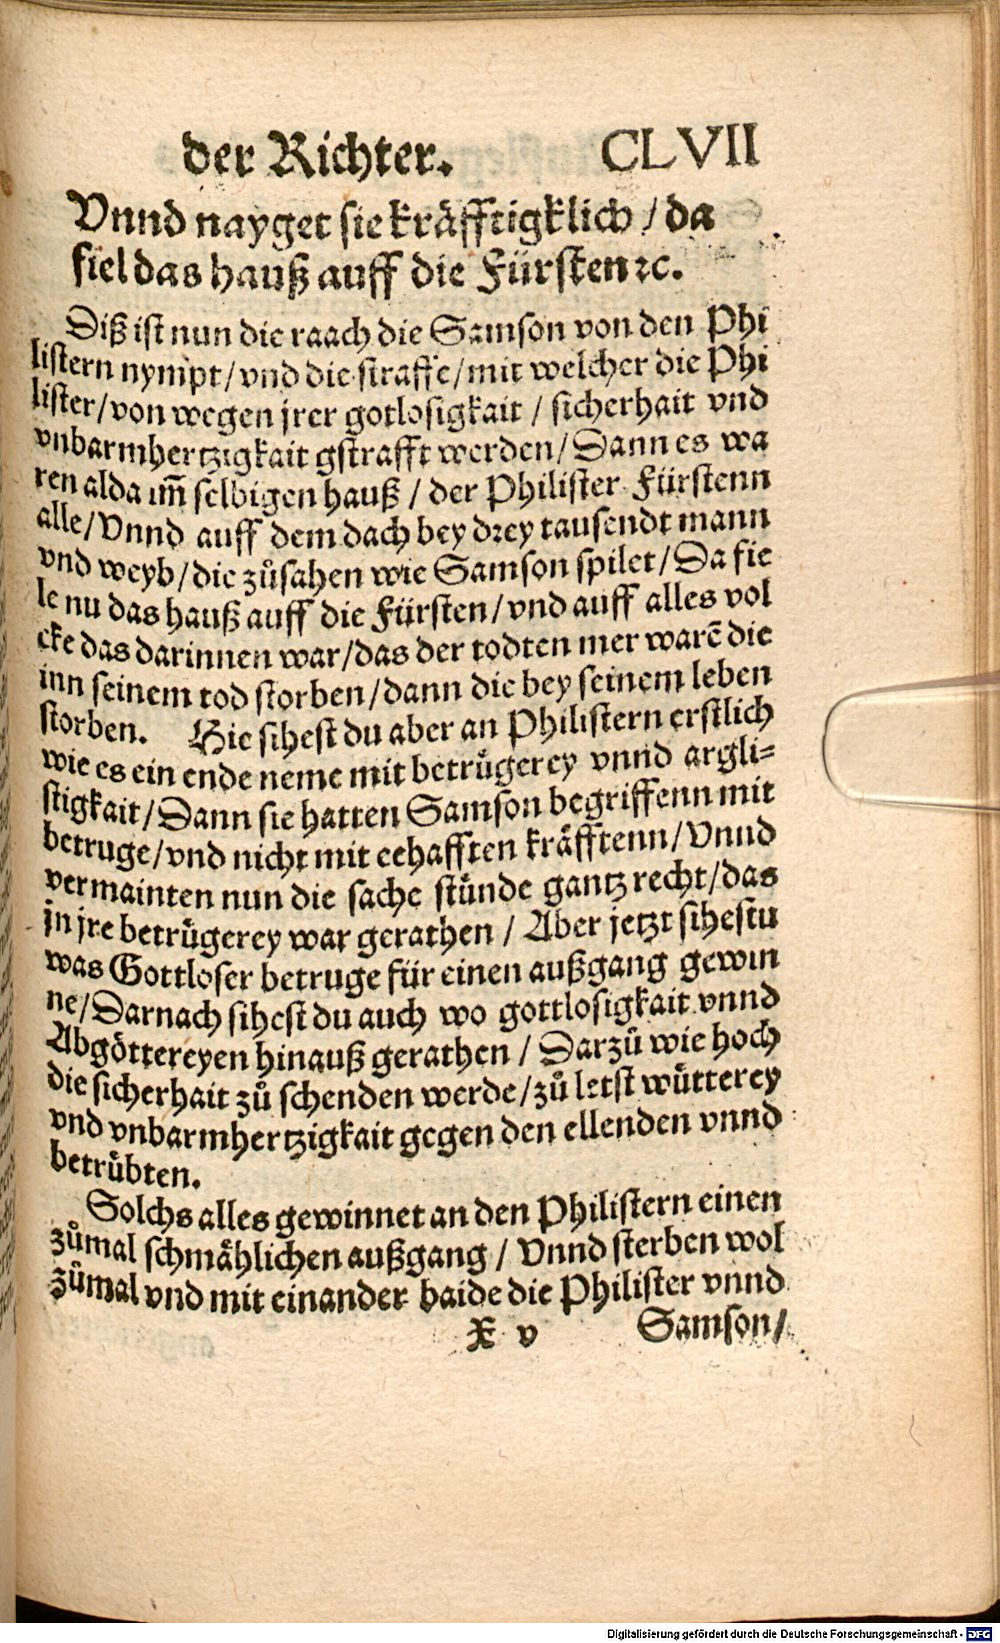 der Richter. CLVII
Vnnd nayget sie kräfftigklich / da
fiel das hauß auff die Fürsten ꝛc.
Diß ist nun die raach die Samson von den Phi
listern nympt / vnd die straffe / mit welcher die Phi
lister / von wegen jrer gotlosigkait / sicherhait vnd
vnbarmhertzigkait gstrafft werden / Dann es wa
ren alda im̃ selbigen hauß / der Philister Fürstenn
alle / Vnnd auff dem dach bey drey tausendt mann
vnd weyb / die zůsahen wie Samson spilet / Da fie
le nu das hauß auff die Fürsten / vnd auff alles vol
cke das darinnen war / das der todten mer warẽ die
inn seinem tod storben / dann die bey seinem leben
storben. Hie sihest du aber an Philistern erstlich
wie es ein ende neme mit betrůgerey vnnd argli⸗
stigkait / Dann sie hatten Samson begriffenn mit
betruge / vnd nicht mit eehafften kräfftenn / Vnnd
vermainten nun die sache stünde gantz recht / das
jn jre betrůgerey war gerathen / Aber jetzt sihestu
was Gottloser betruge für einen außgang gewin
ne / Darnach sihest du auch wo gottlosigkait vnnd
Abgöttereyen hinauß gerathen / Darzů wie hoch
die sicherhait zů schenden werde / zů letst wůtterey
vnd vnbarmhertzigkait gegen den ellenden vnnd
betrůbten.
Solchs alles gewinnet an den Philistern einen
zůmal schmählichen außgang / Vnnd sterben wol
zůmal vnd mit einander baide die Philister vnnd
X v Samson /
Digitalisierung gefördert durch die Deutsche Forschungsgemeinschaft - DFG